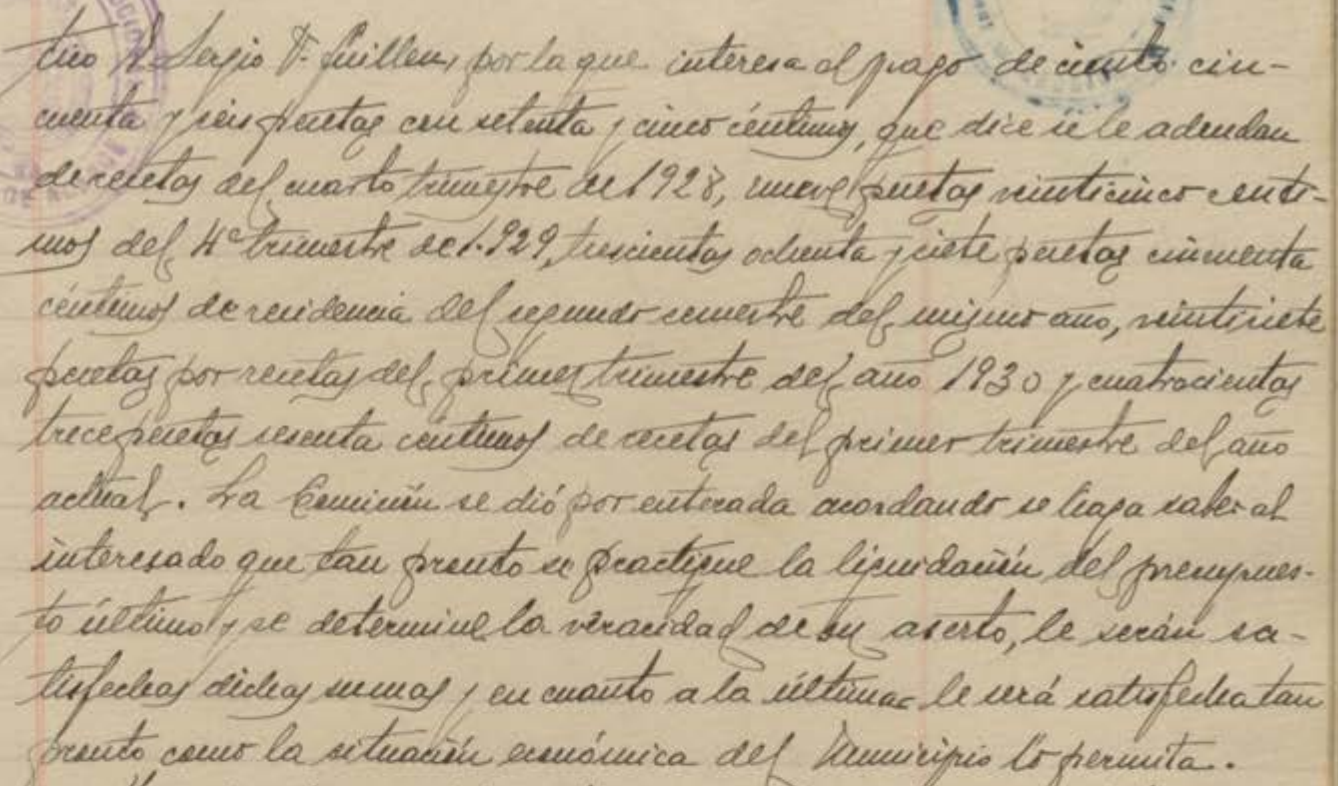 tico D. Sergio F. Guillen, por la que interesa el pago de ciento cin-
cuenta y seis pesetas con setenta y cinco céntimos, que dice se le adeudan
de recetas del cuarto trimestre de 1928, nueve pesetas veinticinco cénti-
mos del 4º trimestre de 1.929, trescientas ochenta y siete pesetas cincuenta
céntimos de residencia del segundo semestre del mismo año, veintisiete
pesetas por recetas del primer trimestre del año 1930 y cuatrocientas
trece pesetas sesenta centimos de recetas del primer trimestre del año
actual. La Comisión se dió por enterada acordando se haga saber al
interesado que tan pronto se practique la liquidación del presupues-
to último y se determine la veracidad de su aserto, le serán sa-
tisfechas dichas sumas y en cuanto a la última le será satisfecha tan
pronto como la situación económica del Municipio lo permita.